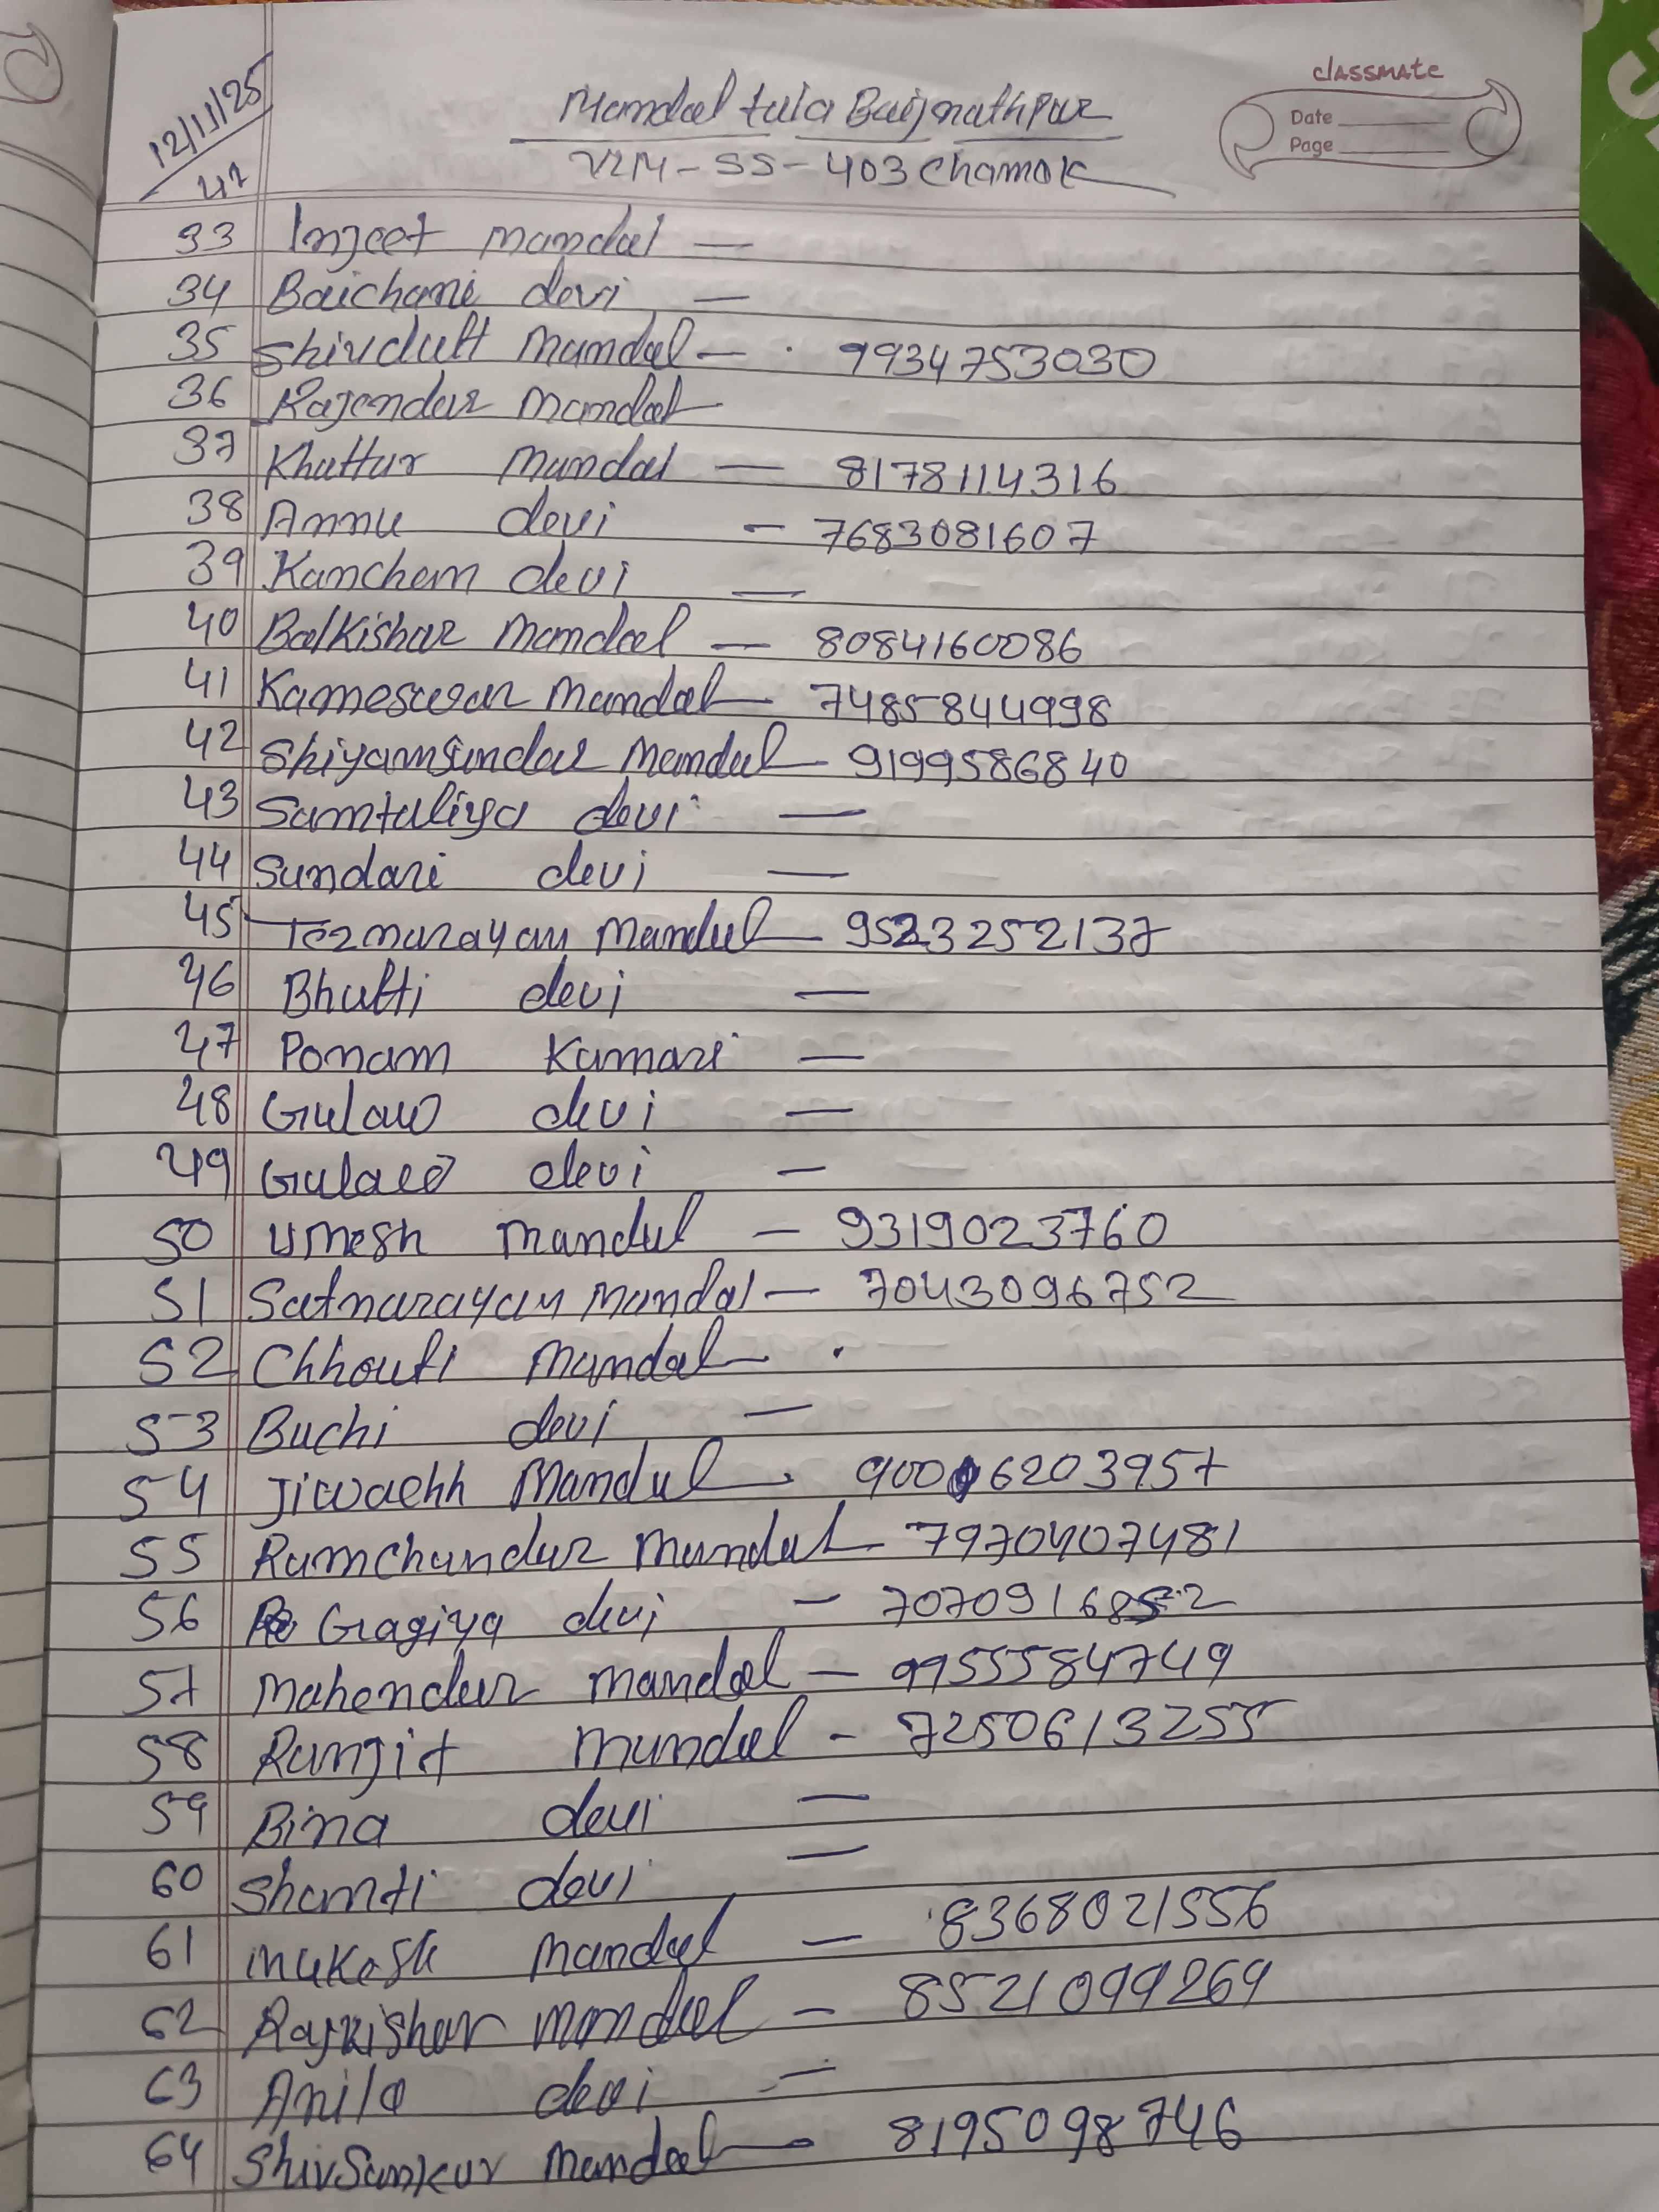 classmate
Date
Page
12/11/25
42
Mandal tula Baijnathpur
VLM-SS-403 Chamok
33 Injeet mandal —
34 Baichani devi —
35 Shivdutt Mandal — 9934753030
36 Rajendar Mandal
37 Khattar Mandal — 8178114316
38 Annu devi — 7683081607
39 Kanchem devi —
40 Balkishar Mandal — 8084160086
41 Kameswar Mandal — 7485844998
42 Shiyamsundar Mandal - 9199586840
43 Samtaliya devi —
44 Sundari devi —
45 Teznarayan Mandul - 9523252137
46 Bhutti devi —
47 Ponam Kumari —
48 Gulaw devi —
49 devi —
50 Umesh Mandul — 9319023760
51 Satnarayan Mandal — 7043096752
52 Chhouti Mandal
53 Buchi devi —
54 Jiwachh Mandul
55 Ramchandar Mandal - 7970407481
56 Gragiya devi —
57 Mahendar Mandal — 9955584749
58 Ranjit Mandal - 7250613255
59 Bina devi —
60 Shanti devi —
61 Mukesh Mandal — 8368021556
62 Rajkishor Mandal — 8521099269
63 Anila devi —
64 ShivSankar Mandal — 8195098746